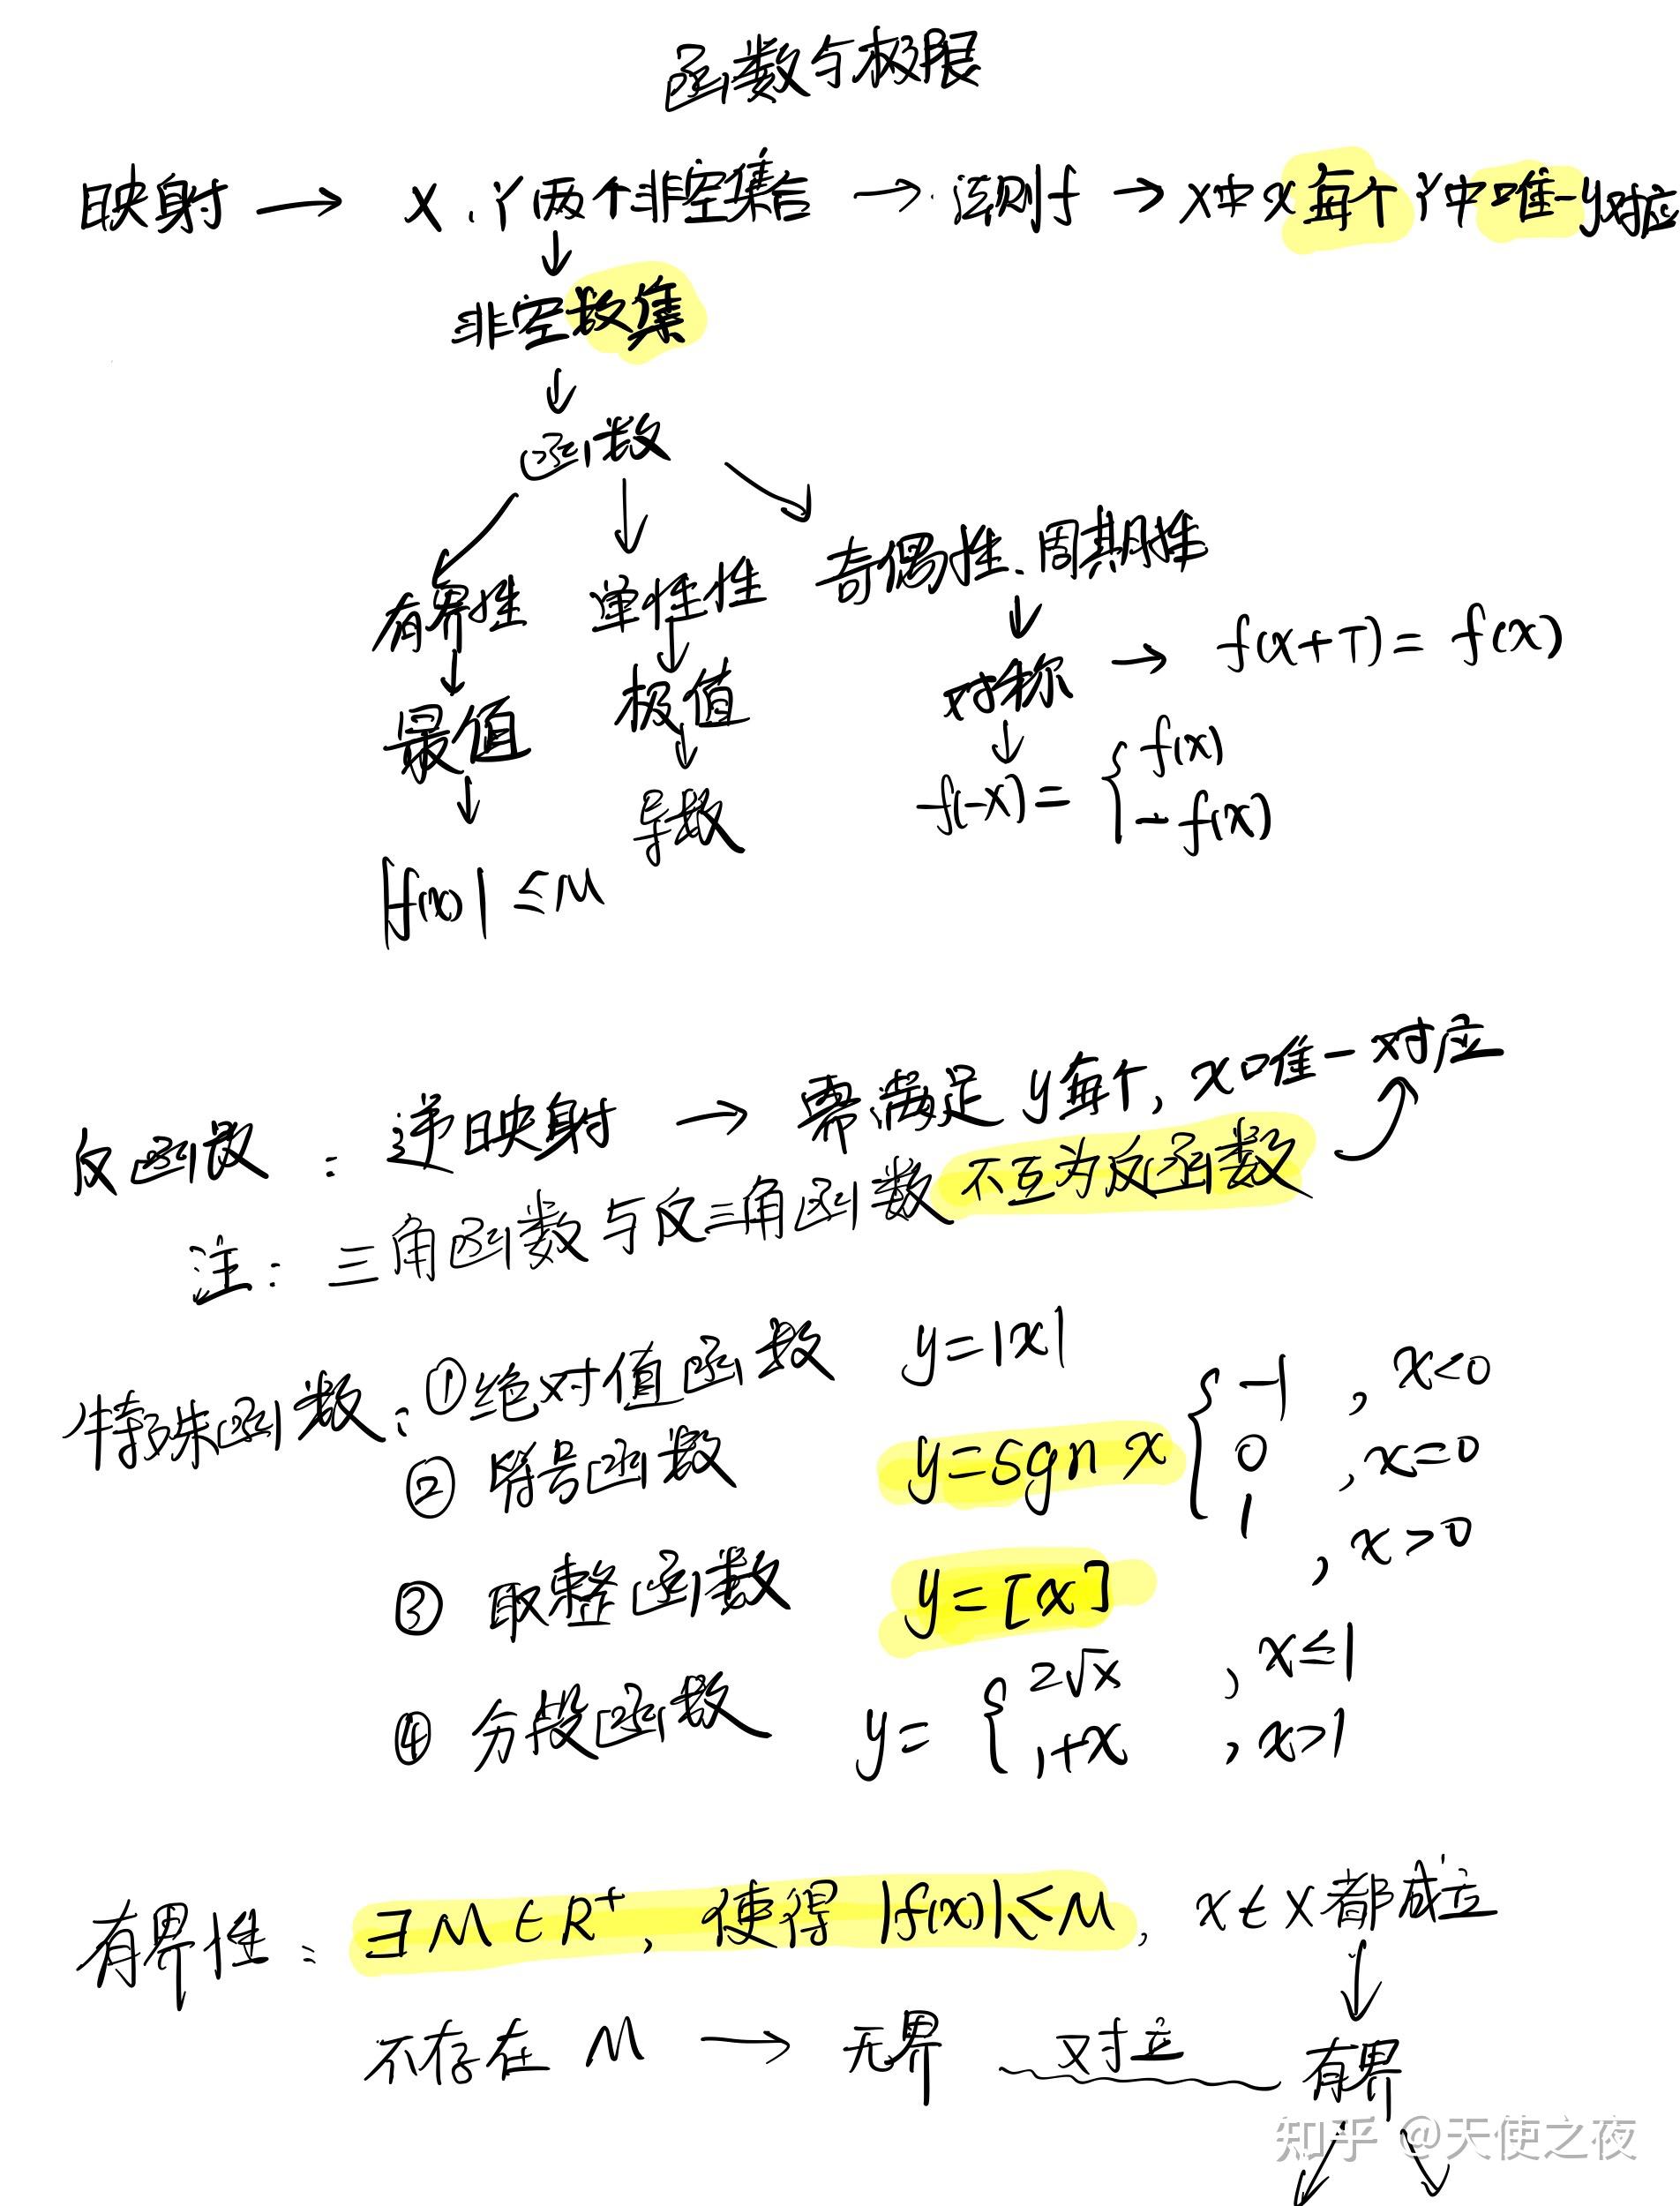 函数与极限
映射 → X、Y两个非空集合 → 法则f → X中x每个Y中唯一y对应
↓
非空数集
↓
函数
有界性 单性性 奇偶性、周期性
↓ ↓ ↓
最值 极值 对称 → f(x+T) = f(x)
↓ ↓ ↓
|f(x)| ≤ M 导数 f(-x) = { f(x)
-f(x)
反函数： 逆映射 → 需满足 y每个, x唯一对应
注：三角函数与反三角函数不互为反函数
特殊函数：①绝对值函数 y=|x|
②符号函数 y=sgn x { -1 , x<0
0 , x=0
1 , x>0
③ 取整函数 y=[x]
④ 分段函数 y= { 2√x , x≤1
1+x , x>1
有界性：∃M∈R⁺, 使得 |f(x)|≤M, x∈X都成立
↓
不存在 M → 无界 对立 有界
知乎 @天使之夜